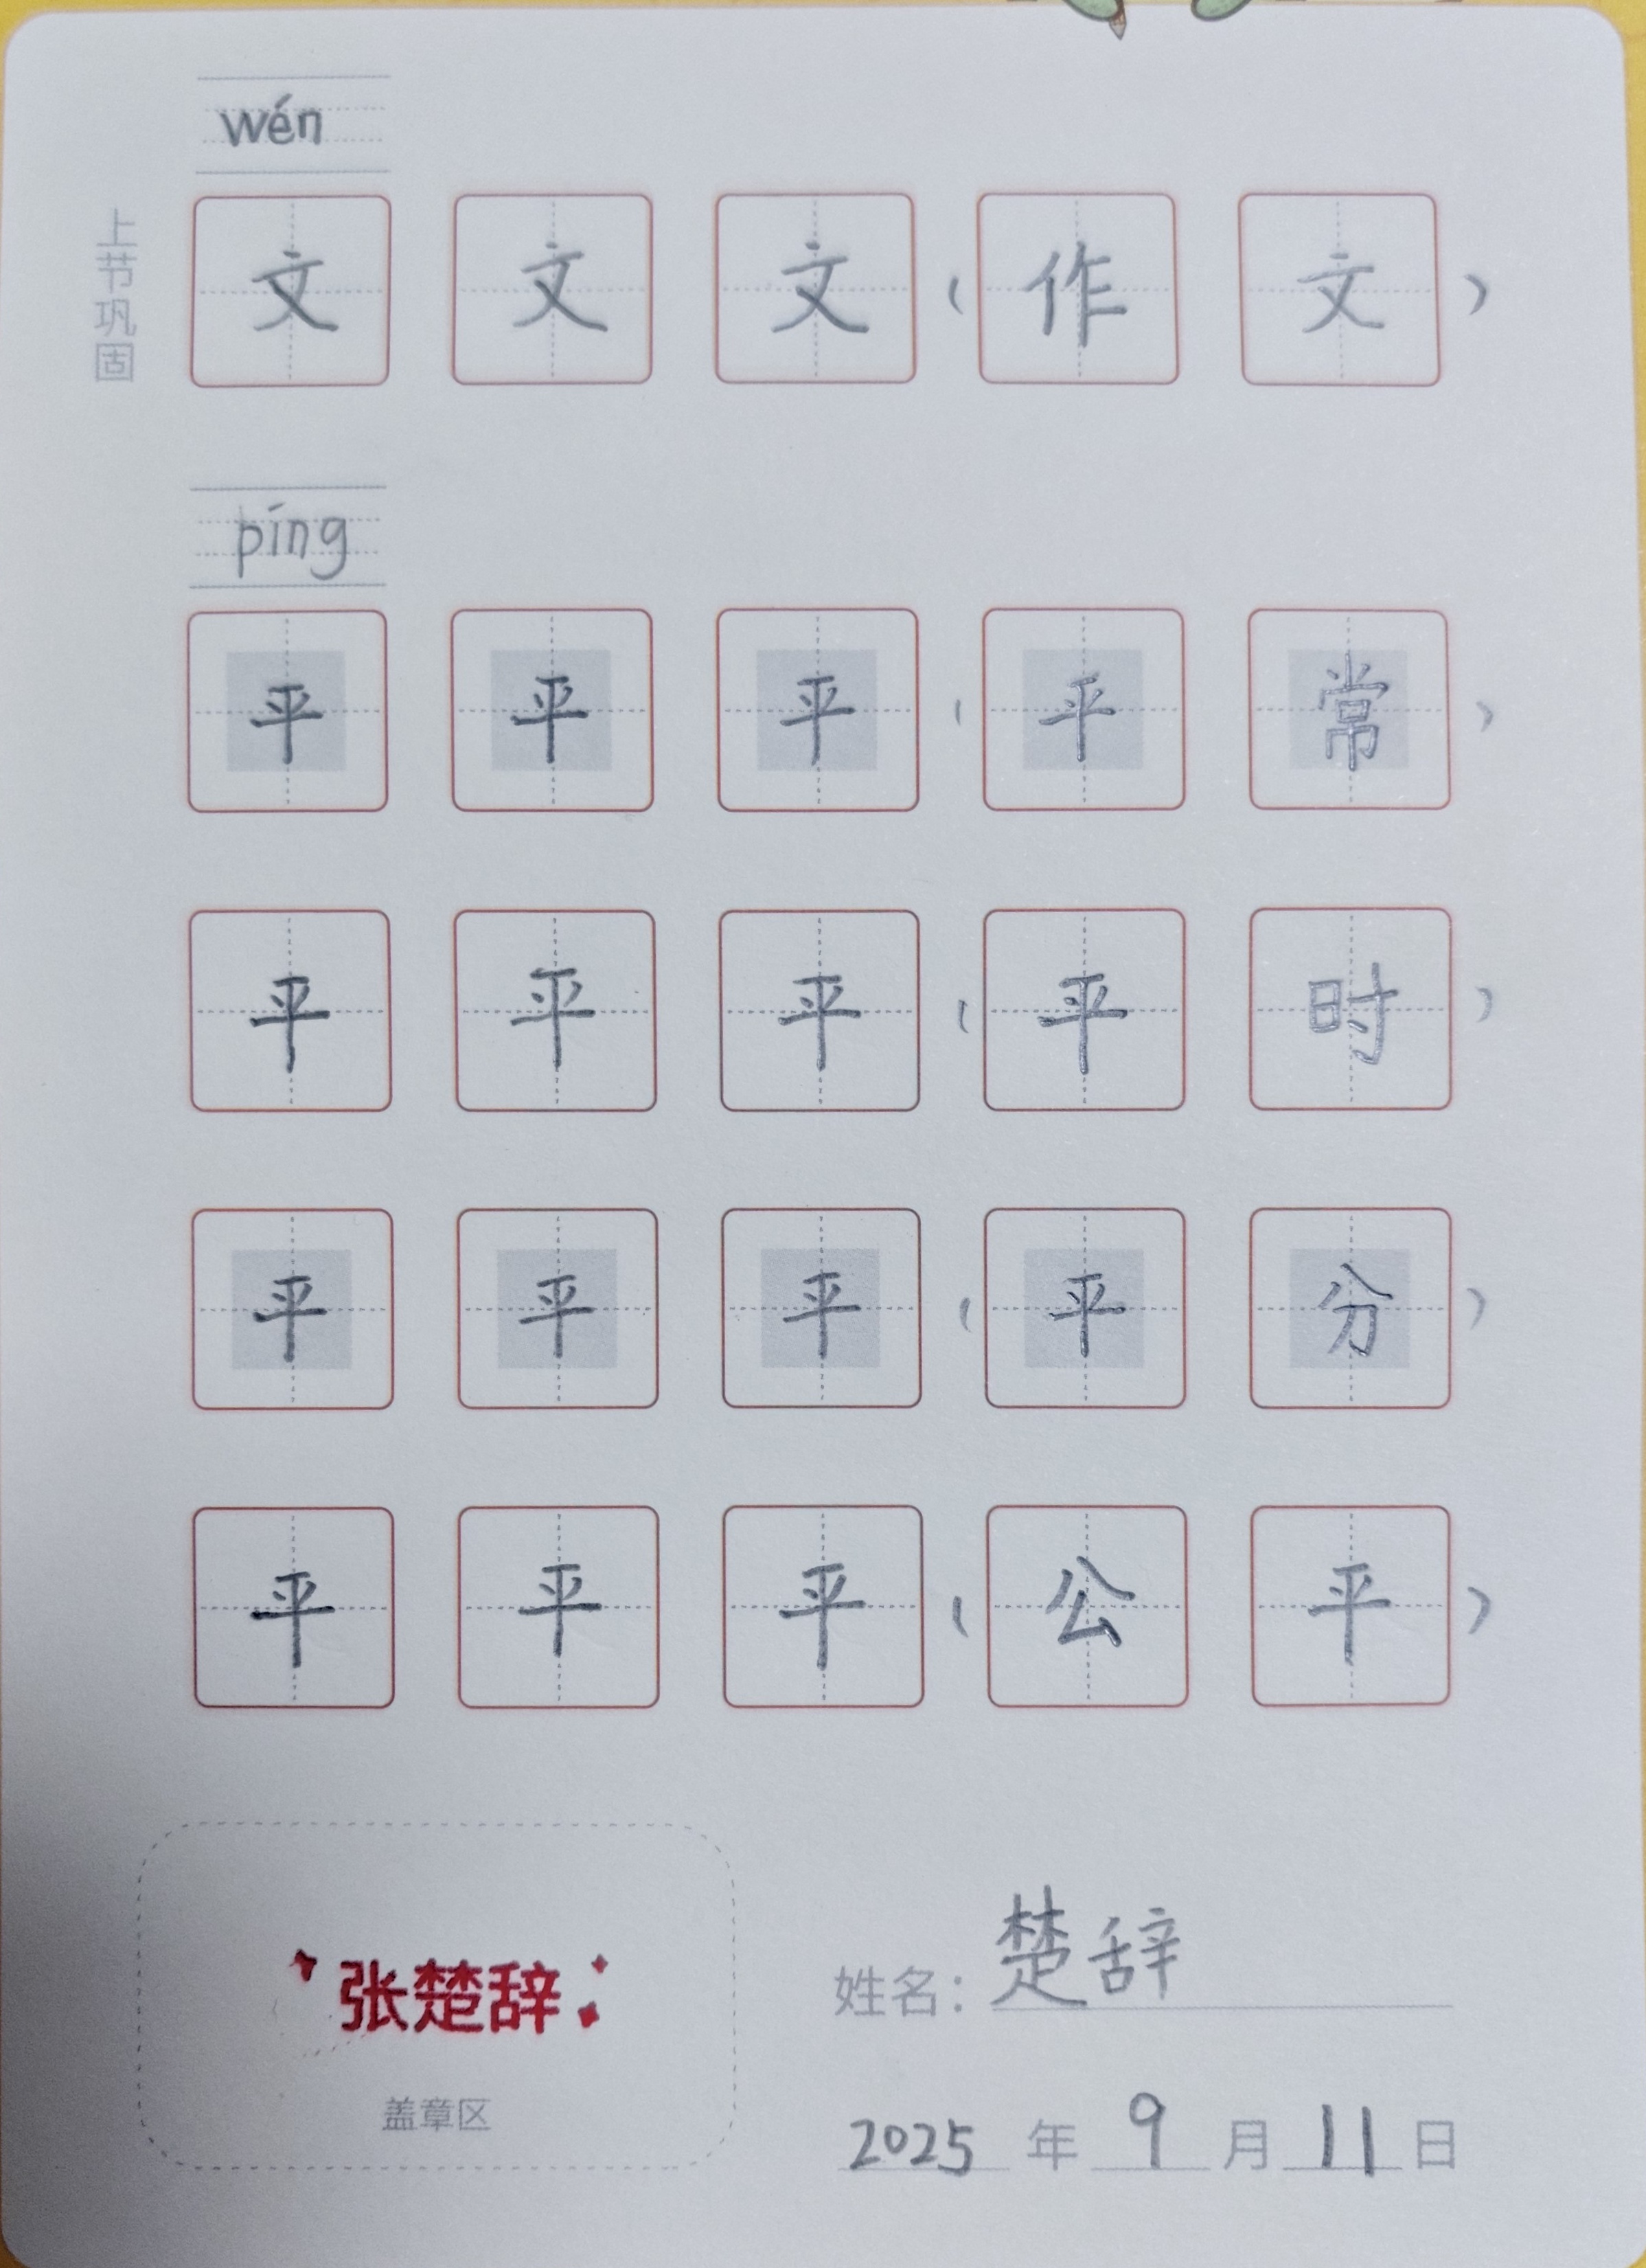 wén
上节巩固
文 文 文 ( 作 文 )
píng
平 平 平 ( 平 常 )
平 平 平 ( 平 时 )
平 平 平 ( 平 分 )
平 平 平 ( 公 平 )
张楚辞
盖章区
姓名：楚辞
2025 年 9 月 11 日